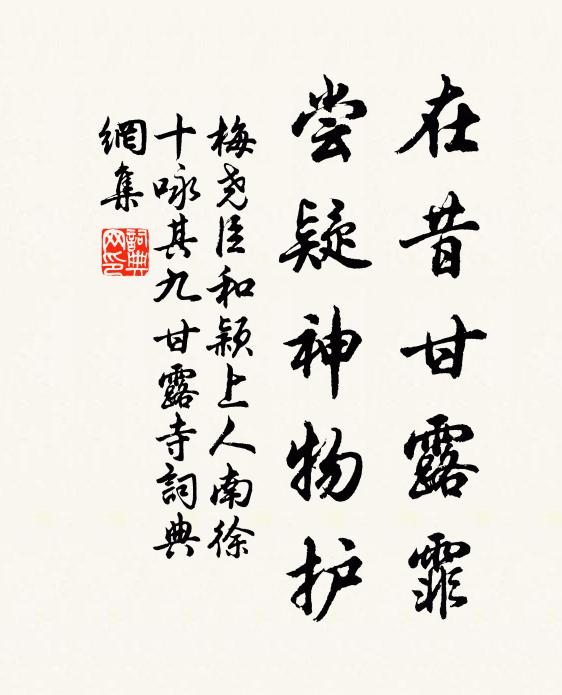 在昔甘露霏
尝疑神物护
梅尧臣和颖上人南徐
十咏其九甘露寺詞典
網集
詞典
网印